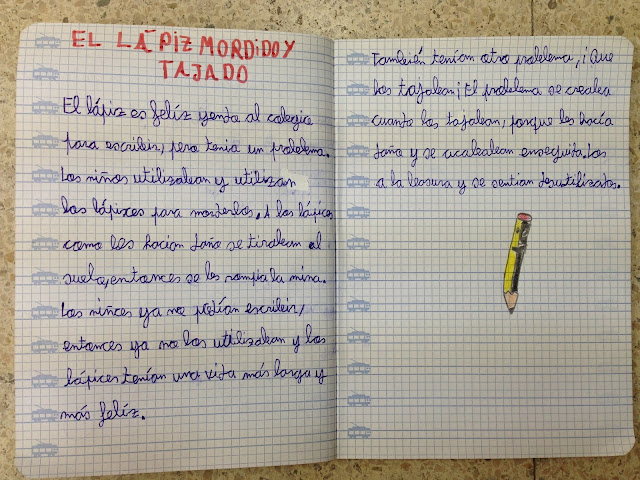 EL LÁPIZ MORDIDO Y
TAJADO
El lápiz es felíz yendo al colegio
para escribir, pero tenia un problema.
Los niños utilizaban y utilizan
los lápices para morderlos. A los lápices
como les hacían daño se tiraban al
suelo, entonces se les rompía la mina.
Los niños ya no podían escribir,
entonces ya no los utilizaban y los
lápices tenían una vida más larga y
más felíz.
También tenían otro problema, ¡Que
los tajaban¡ El problema se creaba
cuando los tajaban, porque les hacía
daño y se acababan enseguida. Los
a la basura y se sentían desutilizados.